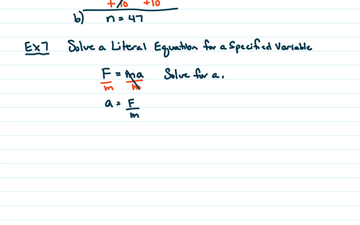 +10 +10
b) n = 47
Ex7 Solve a Literal Equation for a Specified Variable
F = ma Solve for a.
m m
a = F
m